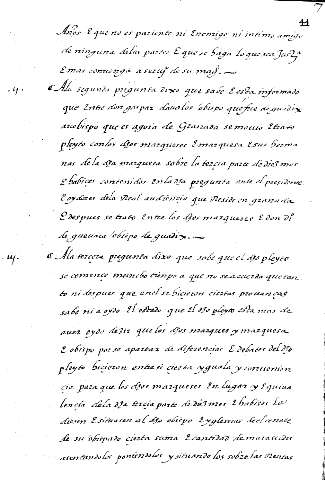 44
Años E que no es pariente ni Enemigo ni intimo amigo
de ninguna delas partes E que se haga lo que sea Justi^a
E mas convenga a servi^o de su mag^d.
.ij. A la segunda pregunta dixo que sabe E esta informado
que Entre don gaspar davalos obispo que fue de guadix
arcobispo que es agora de Granada se movio E trato
pleyto con los d^hos marqueses E marquesa E sus herma
nas de la d^ha marquesa sobre la tercia parte de diezmos
E habices contenidos En la d^ha pregunta ante el presidente
E oydores dela Real audiencia que Reside en granada
E despues se trato Entre los d^hos marqueses E don
de guevara obispo de guadix.
.iij. A la tercera pregunta dixo que sabe que el d^ho pleyto
se començo mucho tiempo a que no se acuerda quanto
ni despues que en el se hizieron ciertas provanças
sabe ni a oydo El estado que El d^ho pleyto esta mas de
aver oydo dezir que los d^hos marques y marquesa
E obispo por se apartar de diferencias E debates del d^ho
pleyto hizieron entre si cierta yguala y convenien
cia para que los d^hos marqueses En lugar y Equiva
lencia de la d^ha tercia parte de diezmos E habices le
diesen E situasen al d^ho obispo E yglesias
de su obispado cierta suma E cantidad de maravedis
poniendolos y situandolos sobre las Rentas